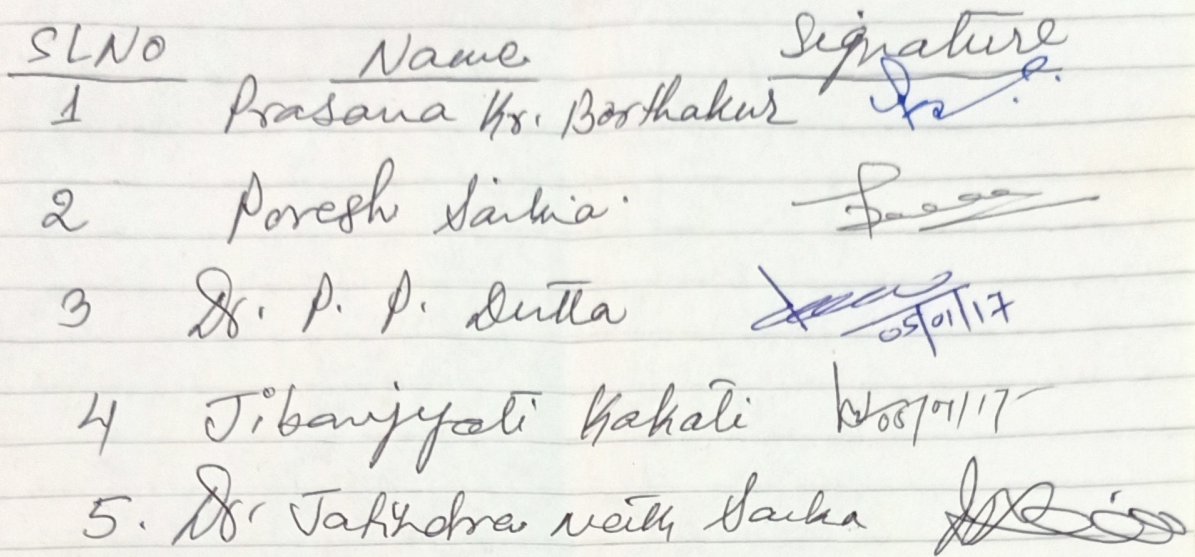 SLNO Name Signature
1 Prasana Kr. Borthakur
2 Poresh Saikia
3 Dr. P. P. Dutta 05/01/17
4 Jibanjyoti Kakati 05/01/17
5. Dr. Jatindra Nath Saikia